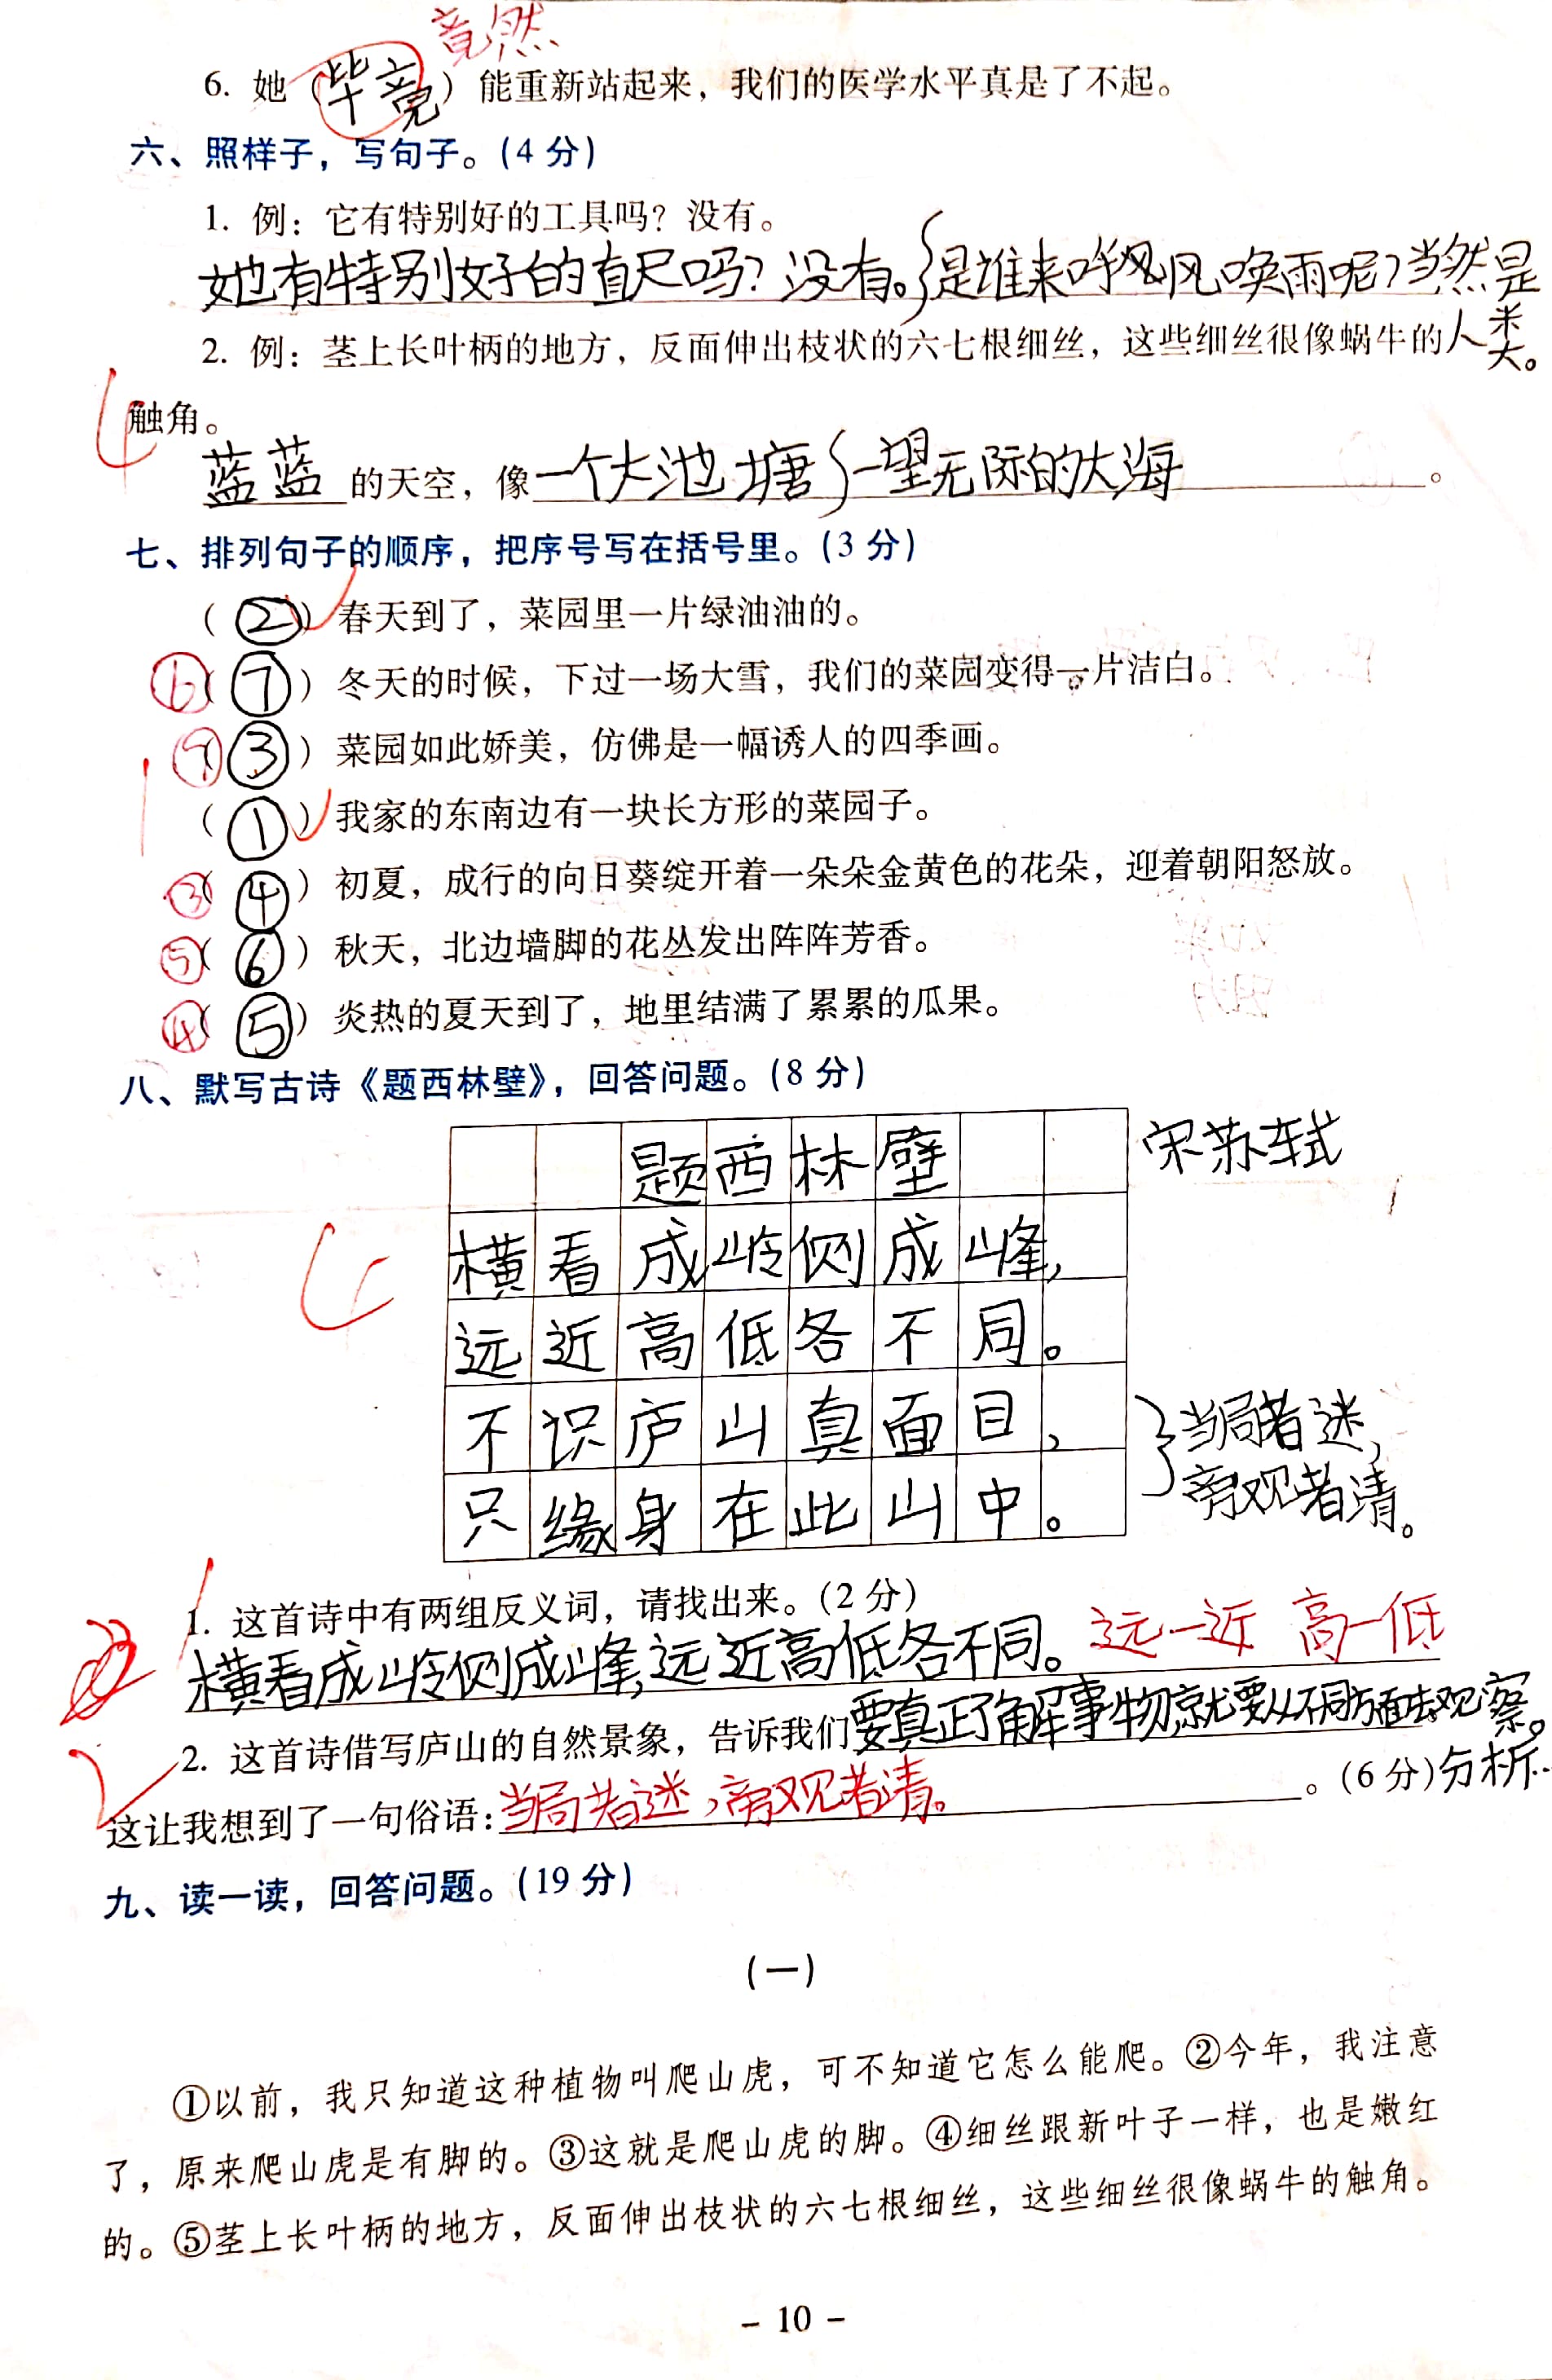 竟然
6. 她（毕竟）能重新站起来，我们的医学水平真是了不起。
六、照样子，写句子。(4 分)
1. 例：它有特别好的工具吗？没有。
她有特别好的直尺吗？没有。}是谁来呼风唤雨呢？当然是
人类。
2. 例：茎上长叶柄的地方，反面伸出枝状的六七根细丝，这些细丝很像蜗牛的
触角。
4
蓝蓝的天空，像一个大池塘}一望无际的大海。
七、排列句子的顺序，把序号写在括号里。(3 分)
（②）春天到了，菜园里一片绿油油的。
⑥（⑦）冬天的时候，下过一场大雪，我们的菜园变得一片洁白。
⑦（③）菜园如此娇美，仿佛是一幅诱人的四季画。
（①）我家的东南边有一块长方形的菜园子。
③（④）初夏，成行的向日葵绽开着一朵朵金黄色的花朵，迎着朝阳怒放。
⑤（⑥）秋天，北边墙脚的花丛发出阵阵芳香。
④（⑤）炎热的夏天到了，地里结满了累累的瓜果。
八、默写古诗《题西林壁》，回答问题。(8 分)
题西林壁 宋苏轼
横看成岭侧成峰，
远近高低各不同。
不识庐山真面目，
只缘身在此山中。
}当局者迷，
旁观者清。
1. 这首诗中有两组反义词，请找出来。(2 分)
横看成岭侧成峰，远近高低各不同。 远—近 高—低
2. 这首诗借写庐山的自然景象，告诉我们要真正了解事物就要从不同方面去观察。
分析..
这让我想到了一句俗语：当局者迷，旁观者清。。(6 分)
九、读一读，回答问题。(19 分)
(一)
①以前，我只知道这种植物叫爬山虎，可不知道它怎么能爬。②今年，我注意
了，原来爬山虎是有脚的。③这就是爬山虎的脚。④细丝跟新叶子一样，也是嫩红
的。⑤茎上长叶柄的地方，反面伸出枝状的六七根细丝，这些细丝很像蜗牛的触角。
- 10 -